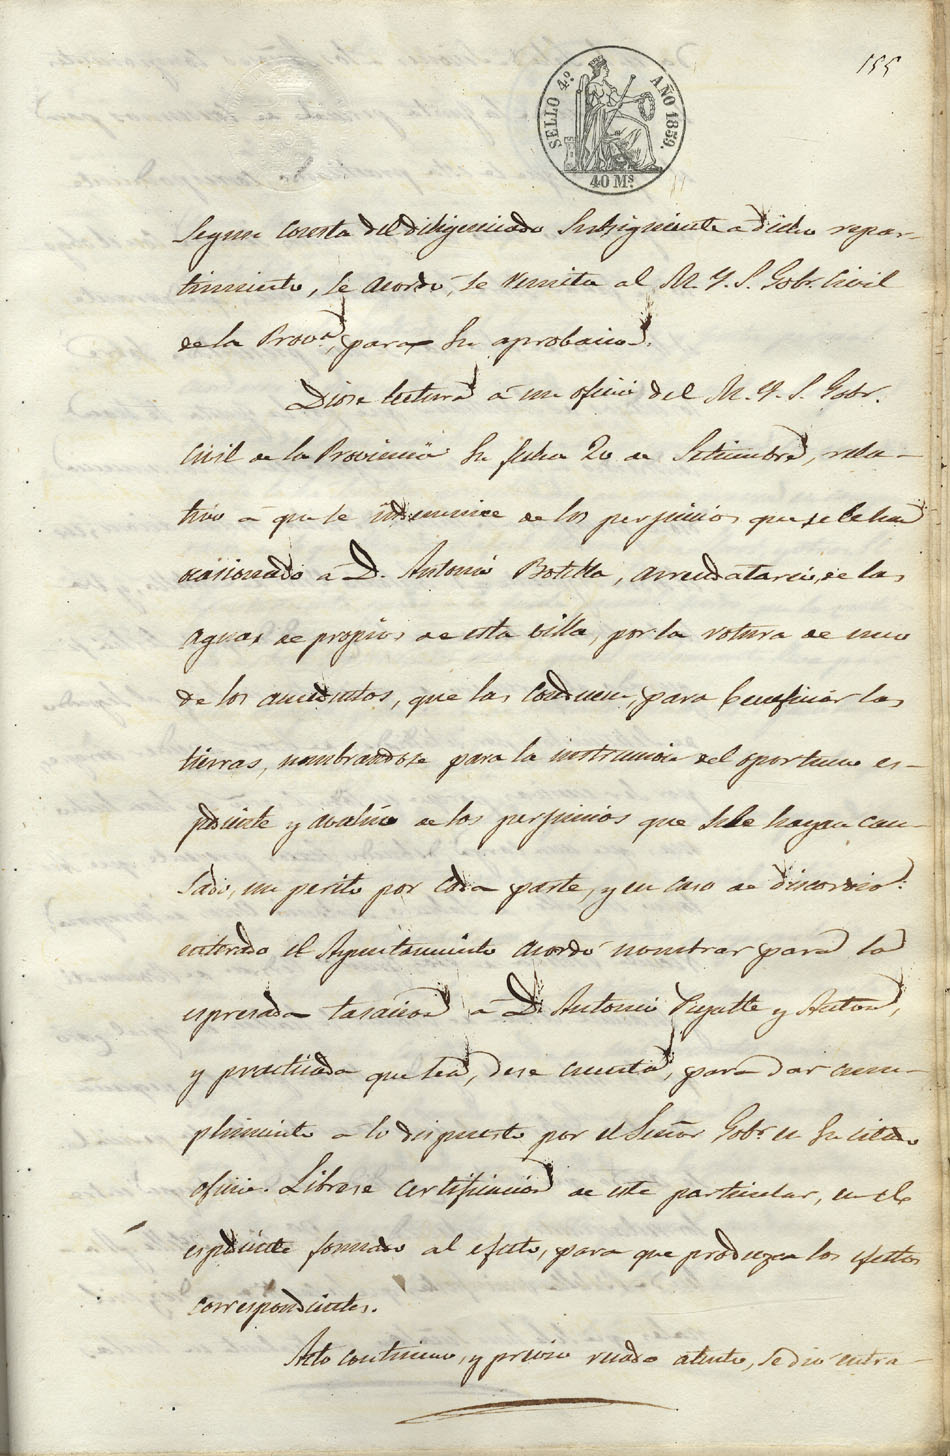 155
SELLO 4.º AÑO 1859.
40 M.s
Segun consta del diligenciado subsiguiente a dicho repar-
timiento, se acordó, se remita al M. Y. S. Gobr. Civil
de la Prov.a, para su aprobacion.
Diose lectura á un oficio del M. Y. S. Gobr.
Civil de la Provincia su fecha 20 de Setiembre, rela-
tivo á que se indemnice de los perjuicios que se le han
ocasionado á D. Antonio Botella, arrendatario de las
aguas de propios de esta villa, por la rotura de uno
de los aueductos, que las conducen, para beneficiar las
tierras, nombrandose para la instruccion del oportuno es-
pediente y avaluo de los perjuicios que se le hayan cau-
sado, un perito por cada parte, y en caso de discordia:
enterado el Ayuntamiento acordó nombrar para la
espresada tasacion á D. Antonio y Anton,
y practicada que sea, dese cuenta, para dar cum-
plimiento a lo dispuesto por el Señor Gobr. en su citado
oficio. Librese certificacion de este particular, en el
espediente formado al efecto, para que produzca los efectos
correspondientes.
Acto continuo, y previo recado atento, se dió entra-